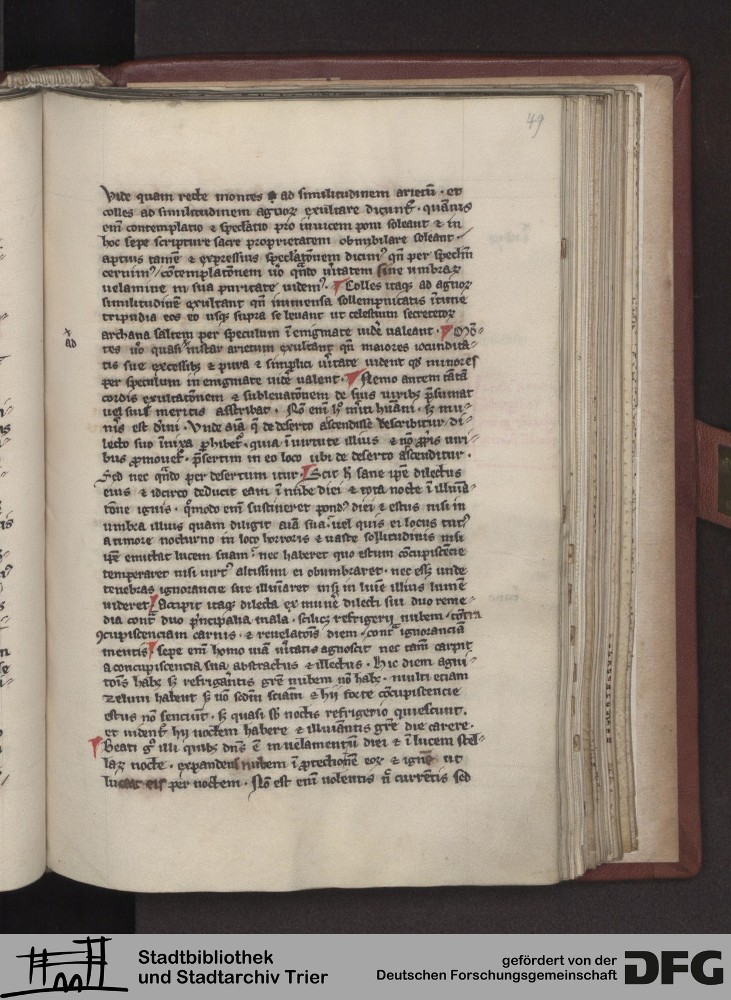 49
Vide quam recte montes ad similitudinem arietū · et
colles ad similitudinem agnoꝝ exultare dicunt᷒ · quāuis
em̄ contemplatio ⁊ spec̄latio pro inuicem poni soleant ⁊ in
hoc sepe scripture sacre proprietatem obnubilare soleant ·
aptius tamē ⁊ expressius spec̄latōnem dicim᷒ qn̄ per spec̄lm̄
cernim᷒ / cōtemplatōnem uo qn̄do u̇itatem sine umbraꝝ
uelamine in sua puritate uidem᷒ · Colles itaqꝫ ad agnoꝝ
similitudinē exultant qn̄ immensa sollempnitatis īt̄ne
tripudia eos eo usqꝫ supra se leuant ut celestium secretoꝝ
archana saltem per speculum ī enigmate uid̄e ualeant · Mō-
tes uo quasi instar arietum exultant qn̄ maiores iocundita-
tis sue excessibꝫ ⁊ pura ⁊ simplici u̇itate uident qd̄ minores
per speculum in enigmate uid̄e ualent · Nemo autem tātā
cordis exultatōnem ⁊ subleuatōnem de suis uiribꝫ p̄sumat
uel suis meritis asscribat · Nō em̄ h̄ m̄iti hūani · sꝫ mu-
nis est diuī · Vnde aīa q̄ de deserto ascendisse describitur di-
lecto suo īnixa ꝑhibet᷒ · quia ī uirtute illius ⁊ nō ꝓp̄is uiri-
bus ꝓmouet᷒ · p̄sertim in eo loco ubi de deserto ascenditur ·
Sed nec qn̄do per desertum itur · Scit h̄ sane ip̄e dilectus
eius ⁊ idcirco deducit eam ī nube diei ⁊ tota nocte ī illuīa-
tōne ignis · qūodo em̄ sustineret pond᷒ diei ⁊ estus nisi in
umbra illius quam diligit aīa sua · uel quis ei locus tut᷒
a timore nocturno in loco horroris ⁊ uaste sollitudinis nisi
ip̄e emittat lucem suam · nec haberet quo estum cōcupiscēcie
temperaret nisi uirt᷒ altissimi ei obumbraret · nec essꝫ unde
tenebras ignorancie sue illuīaret nisi in luīe illius lumē
uideret · Accipit itaqꝫ dilecta ex mun̄e dilecti sui duo reme-
dia cont̄ duo p̄ncipalia mala · scilicꝫ refrigerij nubem · cōtra
ꝯcupiscenciam carnis · ⁊ reuelatōis diem · cont̄ ignoranciā
mentis · sepe em̄ homo uiā u̇itatis agnoscit nec tam̄ carpit
a concupiscencia sua abstractus ⁊ illectus · Hic diem agni-
tōis habꝫ sꝫ refrigerātis gr̄e nubem nō habꝫ · multi etiam
zelum habent sꝫ nō sc̄dm̄ sciām ⁊ hij forte cōcupiscencie
estus nō senciunt · sꝫ quasi sb̄ noctis refrigerio quiescunt ·
et uident᷒ hij noctem habere ⁊ illuīantis gr̄e die carere ·
Beati gͦ illi quibꝫ dn̄s ē in uelamentū diei ⁊ ī lucem stel-
laꝝ nocte · expandens nubem ī ꝓtectionē eoꝝ ⁊ ignē ut
luceat eis per noctem · Nō est em̄ uolentis n̄ currētis sed
ad
Stadtbibliothek
und Stadtarchiv Trier
gefördert von der
Deutschen Forschungsgemeinschaft
DFG